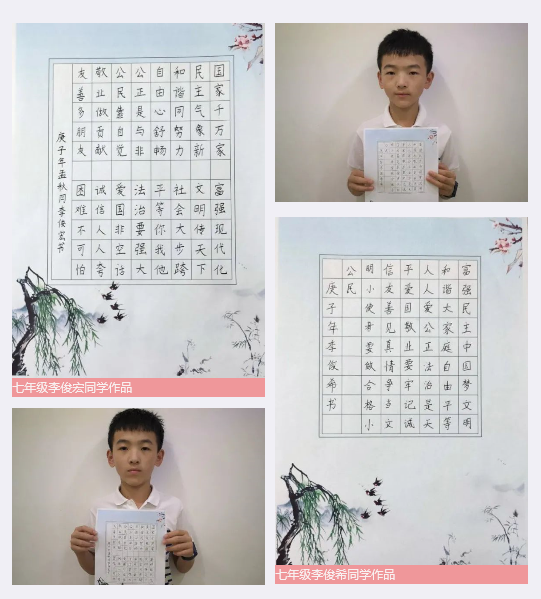 国家千万家 富强现代化
民主气象新 文明传天下
和谐同努力 社会大步跨
自由心舒畅 平等你我他
公正是与非 法治要强大
公民靠自觉 爱国非空话
敬业做贡献 诚信人人夸
友善多朋友 困难不可怕
庚子年孟秋月李俊宏书
七年级李俊宏同学作品
富强民主中国梦文明
和谐大家庭自由平等
人人爱公正法治是天
平爱国敬业要牢记诚
信友善见真情争当文
明小使者要做合格小
公民
庚子年李俊希书
七年级李俊希同学作品